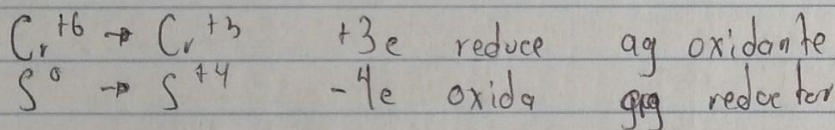 Cr⁺⁶ → Cr⁺³ +3e reduce ag oxidante
S⁰ → S⁺⁴ -4e oxida ag reductor